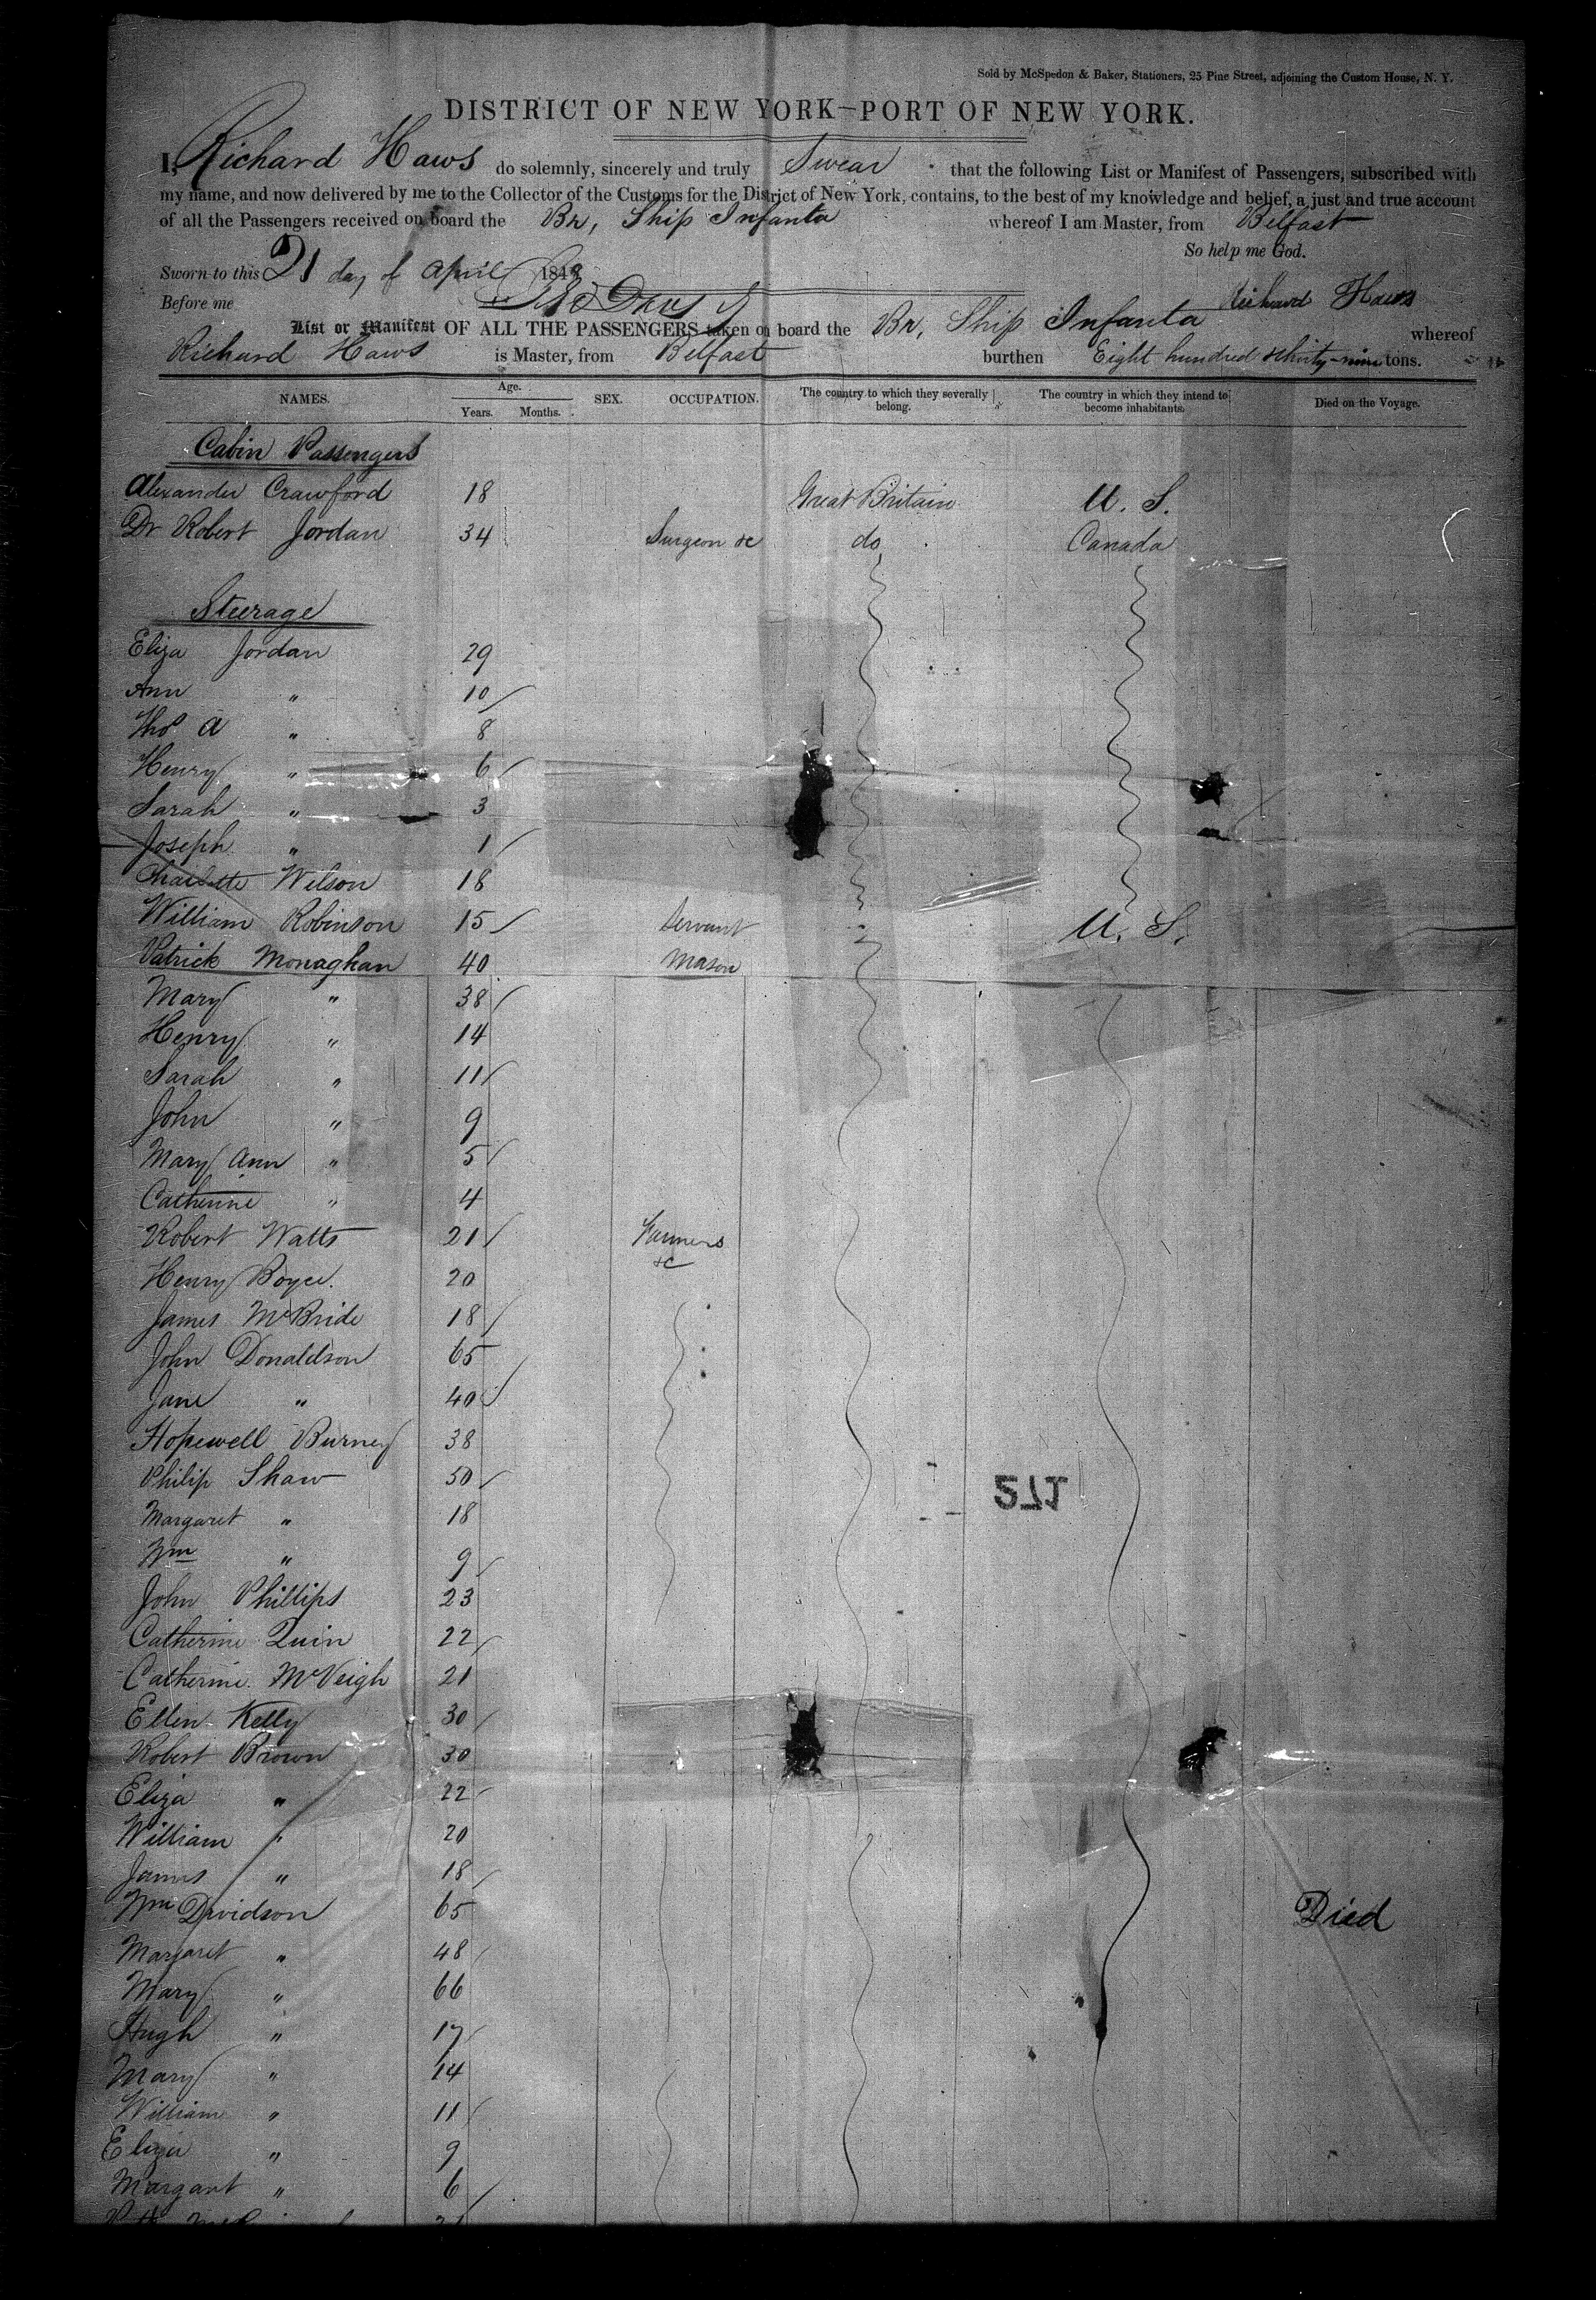 Sold by McSpedon & Baker, Stationers, 25 Pine Street, adjoining the Custom House, N. Y.
DISTRICT OF NEW YORK—PORT OF NEW YORK.
I, Richard Haws do solemnly, sincerely and truly Swear that the following List or Manifest of Passengers, subscribed with
my name, and now delivered by me to the Collector of the Customs for the District of New York, contains, to the best of my knowledge and belief, a just and true account
of all the Passengers received on board the Br, Ship Infanta whereof I am Master, from Belfast
So help me God.
Sworn to this 21 day of April 1848
Richard Haws
Before me
List or Manifest OF ALL THE PASSENGERS taken on board the Br, Ship Infanta whereof
Richard Haws is Master, from Belfast burthen Eight hundred & thirty-nine tons.
NAMES. Age. Years. Months. SEX. OCCUPATION. The country to which they severally belong. The country in which they intend to become inhabitants. Died on the Voyage.
Cabin Passengers
Alexander Crawford 18 Great Britain U. S.
Dr Robert Jordan 34 Surgeon &c do Canada
Steerage
Eliza Jordan 29
Ann " 10
Thos A " 8
Henry " 6
Sarah " 3
Joseph " 1
Charlotte Wilson 18
William Robinson 15 Servant U. S.
Patrick Monaghan 40 Mason
Mary " 38
Henry " 14
Sarah " 11
John " 9
Mary Ann " 5
Catherine " 4
Robert Watts 21 Farmers &c
Henry Boyce. 20
James McBride 18
John Donaldson 65
Jane " 40
Hopewell Burney 38
Philip Shaw 50
271
Margaret " 18
Wm " 9
John Phillips 23
Catherine Quin 22
Catherine McVeigh 21
Ellen Kelly 30
Robert Brown 30
Eliza " 22
William " 20
James " 18
Wm Davidson 65 Died
Margaret " 48
Mary " 66
Hugh " 17
Mary " 14
William " 11
Eliza " 9
Margaret " 6